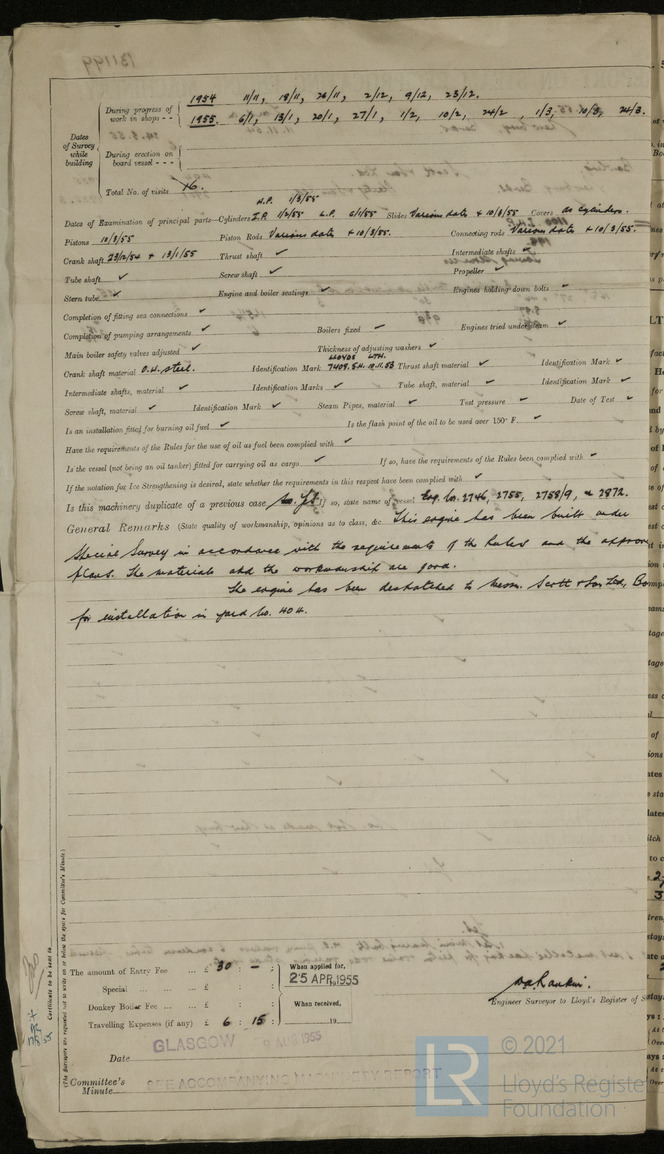 131199
1954 11/11, 18/11, 26/11, 2/12, 9/12, 23/12.
During progress of work in shops - - 1955. 6/1, 13/1, 20/1, 27/1, 1/2, 10/2, 24/2, 1/3, 10/3, 24/3.
Dates of Survey while building
During erection on board vessel - - -
Total No. of visits 16.
H.P. 1/3/55
Dates of Examination of principal parts—Cylinders I.P. 1/2/55 L.P. 6/1/55 Slides Various dates + 10/3/55 Covers as cylinders.
Pistons 10/3/55 Piston Rods Various dates + 10/3/55. Connecting rods Various dates + 10/3/55.
Crank shaft 23/12/54 + 13/1/55 Thrust shaft ✓ Intermediate shafts ✓
Tube shaft ✓ Screw shaft ✓ Propeller ✓
Stern tube ✓ Engine and boiler seatings ✓ Engines holding down bolts ✓
Completion of fitting sea connections ✓
Completion of pumping arrangements ✓ Boilers fixed ✓ Engines tried under steam ✓
Main boiler safety valves adjusted ✓ Thickness of adjusting washers ✓
Crank shaft material O.H. Steel. Identification Mark LLOYDS LTH. 7409. 10.11.53 Thrust shaft material ✓ Identification Mark ✓
Intermediate shafts, material ✓ Identification Marks ✓ Tube shaft, material ✓ Identification Mark ✓
Screw shaft, material ✓ Identification Mark ✓ Steam Pipes, material ✓ Test pressure ✓ Date of Test ✓
Is an installation fitted for burning oil fuel ✓ Is the flash point of the oil to be used over 150° F. ✓
Have the requirements of the Rules for the use of oil as fuel been complied with ✓
Is the vessel (not being an oil tanker) fitted for carrying oil as cargo ✓ If so, have the requirements of the Rules been complied with ✓
If the notation for Ice Strengthening is desired, state whether the requirements in this respect have been complied with ✓
Is this machinery duplicate of a previous case Yes If so, state name of vessel Eng. No. 2746, 2755, 2758/9, & 2872.
General Remarks (State quality of workmanship, opinions as to class, &c. This engine has been built under
Special Survey in accordance with the requirements of the Rules and the approved
plans. The materials and the workmanship are good.
The engine has been despatched to Messrs. Scott & Sons Ltd, Bo
for installation in yard No. 404.
The amount of Entry Fee ... £ 30 : — : When applied for,
Special ... ... £ : : 25 APR 1955
Donkey Boiler Fee ... ... £ : : When received,
Travelling Expenses (if any) £ 6 : 15 : 19
D.A. Rankin.
Engineer Surveyor to Lloyd's Register of S
Date GLASGOW AUG 1955
Committee's Minute SEE ACCOMPANYING MACHINERY REPORT
(The Surveyors are requested not to write on or below the space for Committee's Minute)
Certificate to be sent to
© 2021
LR Lloyd's Register
Foundation